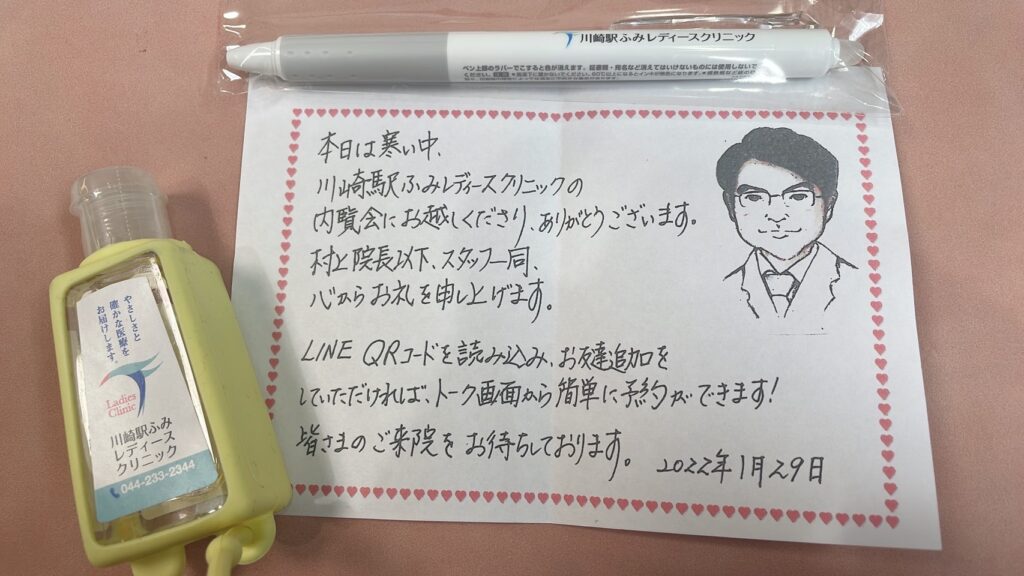 川崎駅ふみレディースクリニック
ペン上部のラバーでこすると色が消えます。証書類・宛名など消えてはいけないものには使用しないで
ください。
本日は寒い中、
川崎駅ふみレディースクリニックの
内覧会にお越しくださり、ありがとうございます。
村上院長以下、スタッフ一同、
心からお礼を申し上げます。
LINE QRコードを読み込み、お友達追加を
していただければ、トーク画面から簡単に予約ができます!
皆さまのご来院をお待ちしております。
2022年1月29日
やさしさと
確かな医療を
お届けします。
Ladies
Clinic
川崎駅ふみ
レディース
クリニック
044-233-2344